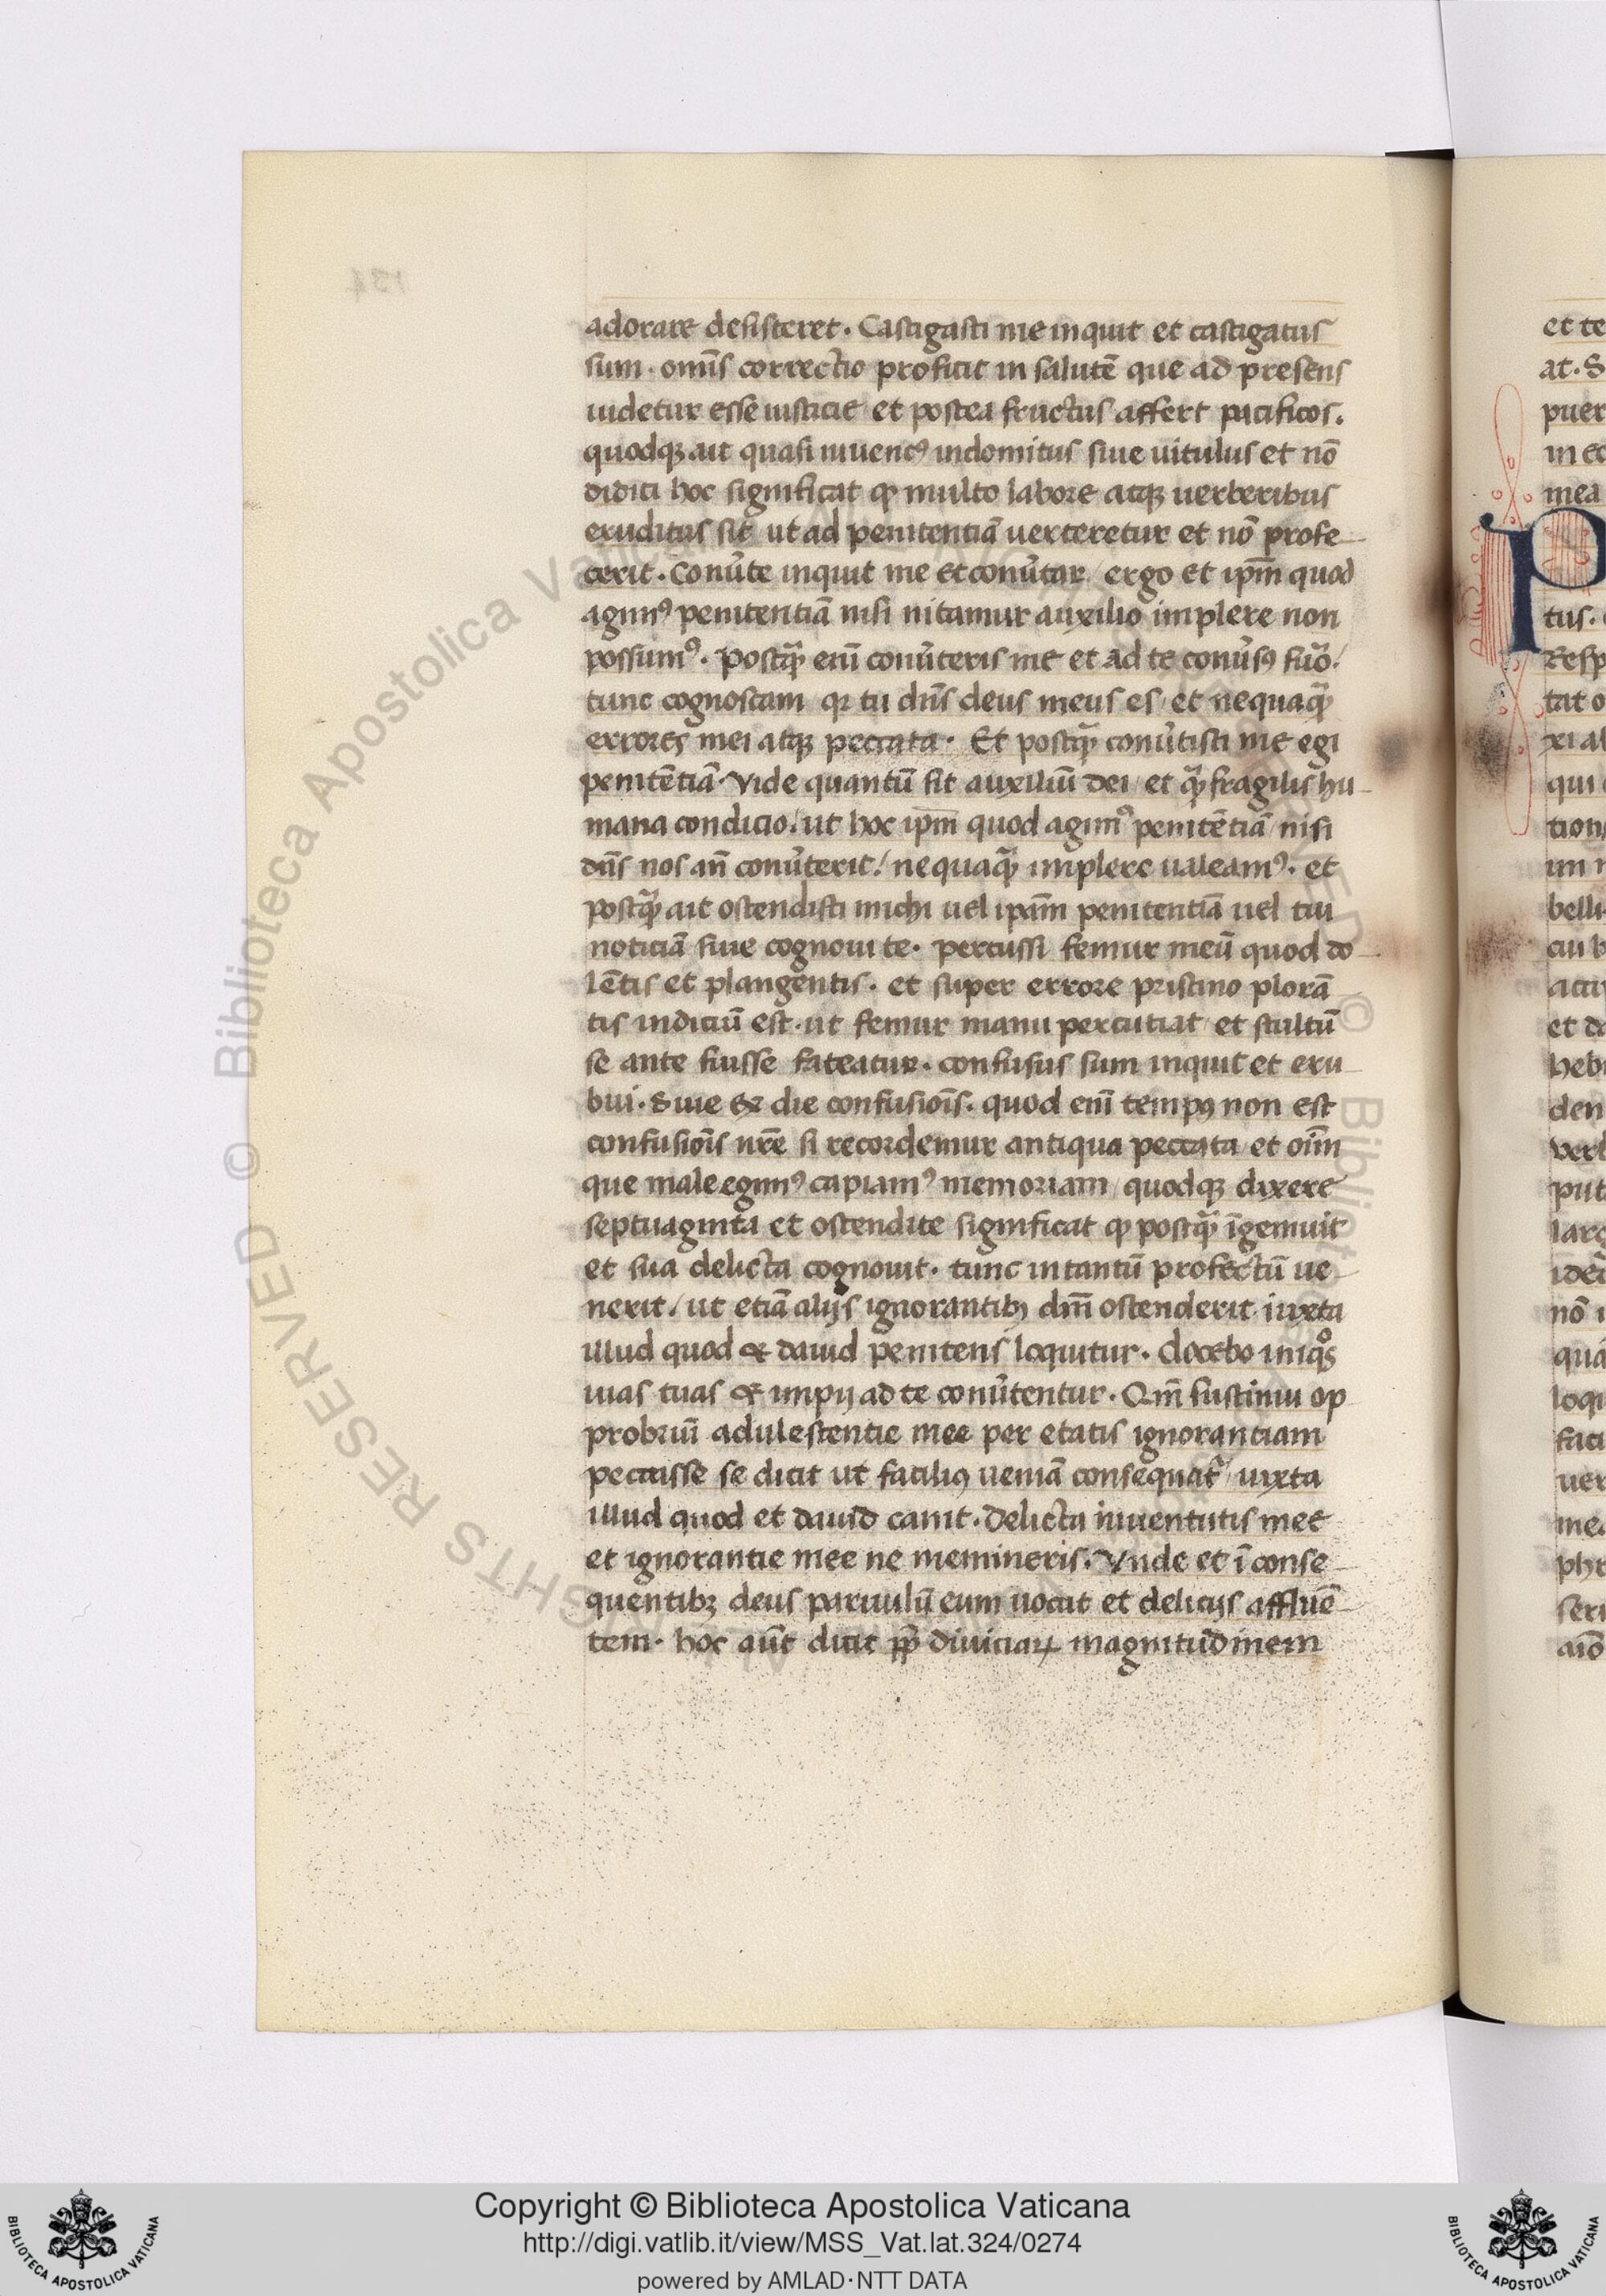 adorare desisteret. Castigasti me inquit et castigatus
sum. omīs correctio proficit in salutē que ad presens
uidetur esse iusticie et postea fructus affert pacificos.
quodqꝫ ait quasi iuuencꝰ indomitus siue uitulus et nō
didici hoc significat ꝙ multo labore atqꝫ uerberibus
eruditus sit ut ad penitentiā uerteretur et nō profe
cerit. Conũte inquit me et conũtar / ergo et ipm̄ quod
agimꝰ penitentiā nisi nitamur auxilio implere non
possumꝰ. postꝙ̃ enī conũteris me et ad te conũsꝰ fuō /
tunc cognoscam qꝛ tu dn̄s deus meus es / et nequaꝙ̃
errores mei atqꝫ peccata. Et postꝙ̃ conũtisti me egi
penitētiā. Vide quantū sit auxiliū dei / et ꝙ̃ fragilis hu
mana condicio / ut hoc ipm̄ quod agimꝰ penitētiā / nisi
dn̄s nos an̄ conũterit / nequaꝙ̃ implere ualeamꝰ. et
postꝙ̃ ait ostendisti michi uel ipam̄ penitentiā uel tui
noticiā siue cognoui te. percussi femur meū quod do
lētis et plangentis. et super errore pristino plorā
tis indiciū est. ut femur manu percutiat et stultū
se ante fuisse fateatur. confusus sum inquit et eru
bui. Siue ex die confusiōis. quod enī tempꝰ non est
confusiōis nr̄e si recordemur antiqua peccata / et oīm
que male egimꝰ capiamꝰ memoriam / quodqꝫ dixere
septuaginta et ostendite significat ꝙ postꝙ̃ īgemuit
et sua delicta cognouit. tunc intantū profectū ue
nerit / ut etiā alijs ignorantibꝫ dm̄ ostenderit iuxta
illud quod & dauid penitens loquitur. docebo iniqͦs
uias tuas & impij ad te conũtentur. Qm̄ sustinui op
probriū adulescentie mee per etatis ignorantiam
peccasse se dicit ut faciliꝰ ueniā consequat᷑ / iuxta
illud quod et dauid canit. Delicta iuuentutis mee
et ignorantie mee ne memineris. Vnde et ī conse
quentibꝫ deus paruulū eum uocat et delicijs affluē
tem. hoc aūt dicit ꝓp̄ diuiciaꝝ magnitudinem
et te
at. S
puer
in ec
mea
P
tus.
Resp
tat o
xi al
qui
tion
im
belli
cu b
acti
et d
heb
den
verb
put
larg
idec
nō
quā
loqu
faci
uer
mea
phr
seri
aiō
Copyright © Biblioteca Apostolica Vaticana
http://digi.vatlib.it/view/MSS_Vat.lat.324/0274
powered by AMLAD·NTT DATA
BIBLIOTECA APOSTOLICA VATICANA
BIBLIOTECA APOSTOLICA VATICANA